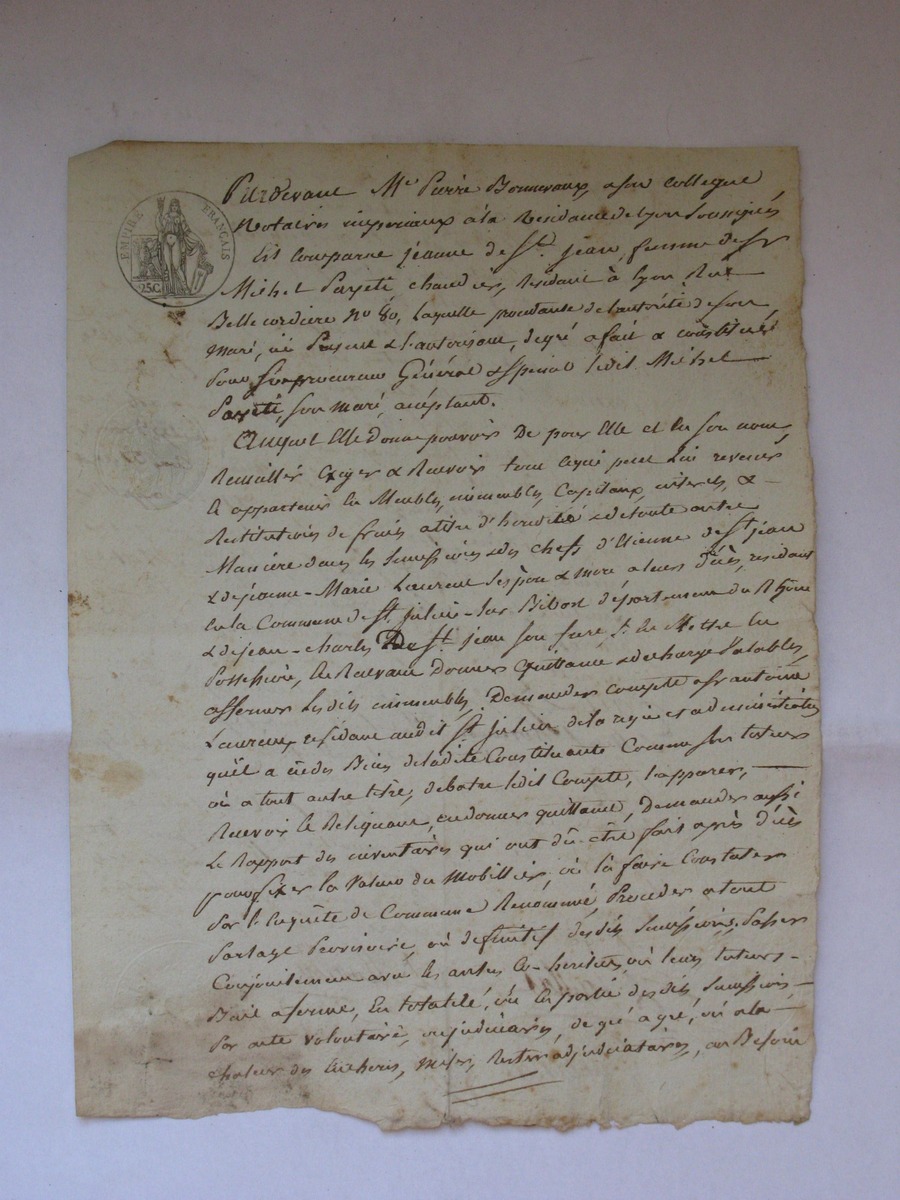 EMPIRE FRANÇAIS
25 C.
Pardevant Me Pierre Bonnevaux, & son collegue
Notaires impériaux à la Residance de Lyon Soussignés
Est Comparue jeanne de St. jean, femme de sr
Michel Payeté, chaudier, Résidant à Lyon Rue
Belle cordiere No 80, laquelle procédante de l'autorité de son
Mari, ici Présent & l'autorisant, de gré a fait & constitué
Pour Son procureur Général & spécial ledit Michel
Payeté, son mari, acéptant.
Auquel Elle donne pouvoir De pour Elle et En son nom
Receuillir Exiger & Recevoir tout ce qui peut Lui revenir
& appartenir En Meubles, immeubles, Capitaux, interets, &
Restitutions de fruits a titre d'heredité & de toute autre
Maniere dans les Successions & des chefs d'Etienne de St. jean
& de jeanne-Marie Laurent Ses père & mere a leurs décès, residant
En la Commune de St. julien-Sur Bibost département du Rhone
& de jean-charles De St. jean son frere, Se Mettre En
Possession, En Recevant Donner Quittance & decharge Valables,
affermer Lesdits immeubles, Demander compte a sr antoine
Laurent, résidant audit St. julien de la regie et administration
qu'il a eu des Biens de ladite Constituante Comme Son tuteur
où a tout autre titre, debatre ledit Compte, l'apurer,
Recevoir le Reliquat, en donner quittance, Demander aussi
Le Rapport des inventaires qui ont dû être fait après décès
pour fixer la Valeur du Mobillier, où la faire Constater
Par l'Enquête de Commune Renommé, Proceder a tout
Partage Provisoire, où definitif desdits Successions, Passer
Conjointement avec les autres Co-heritiers, où leurs tuteurs
Bail a ferme, En totalité, où En partie desdits Successions,
Par acte volontaire, ou judiciaire, de gré a gré, où a la
chaleur des Encheres, Mises, Rester adjudicataires, au Besoin